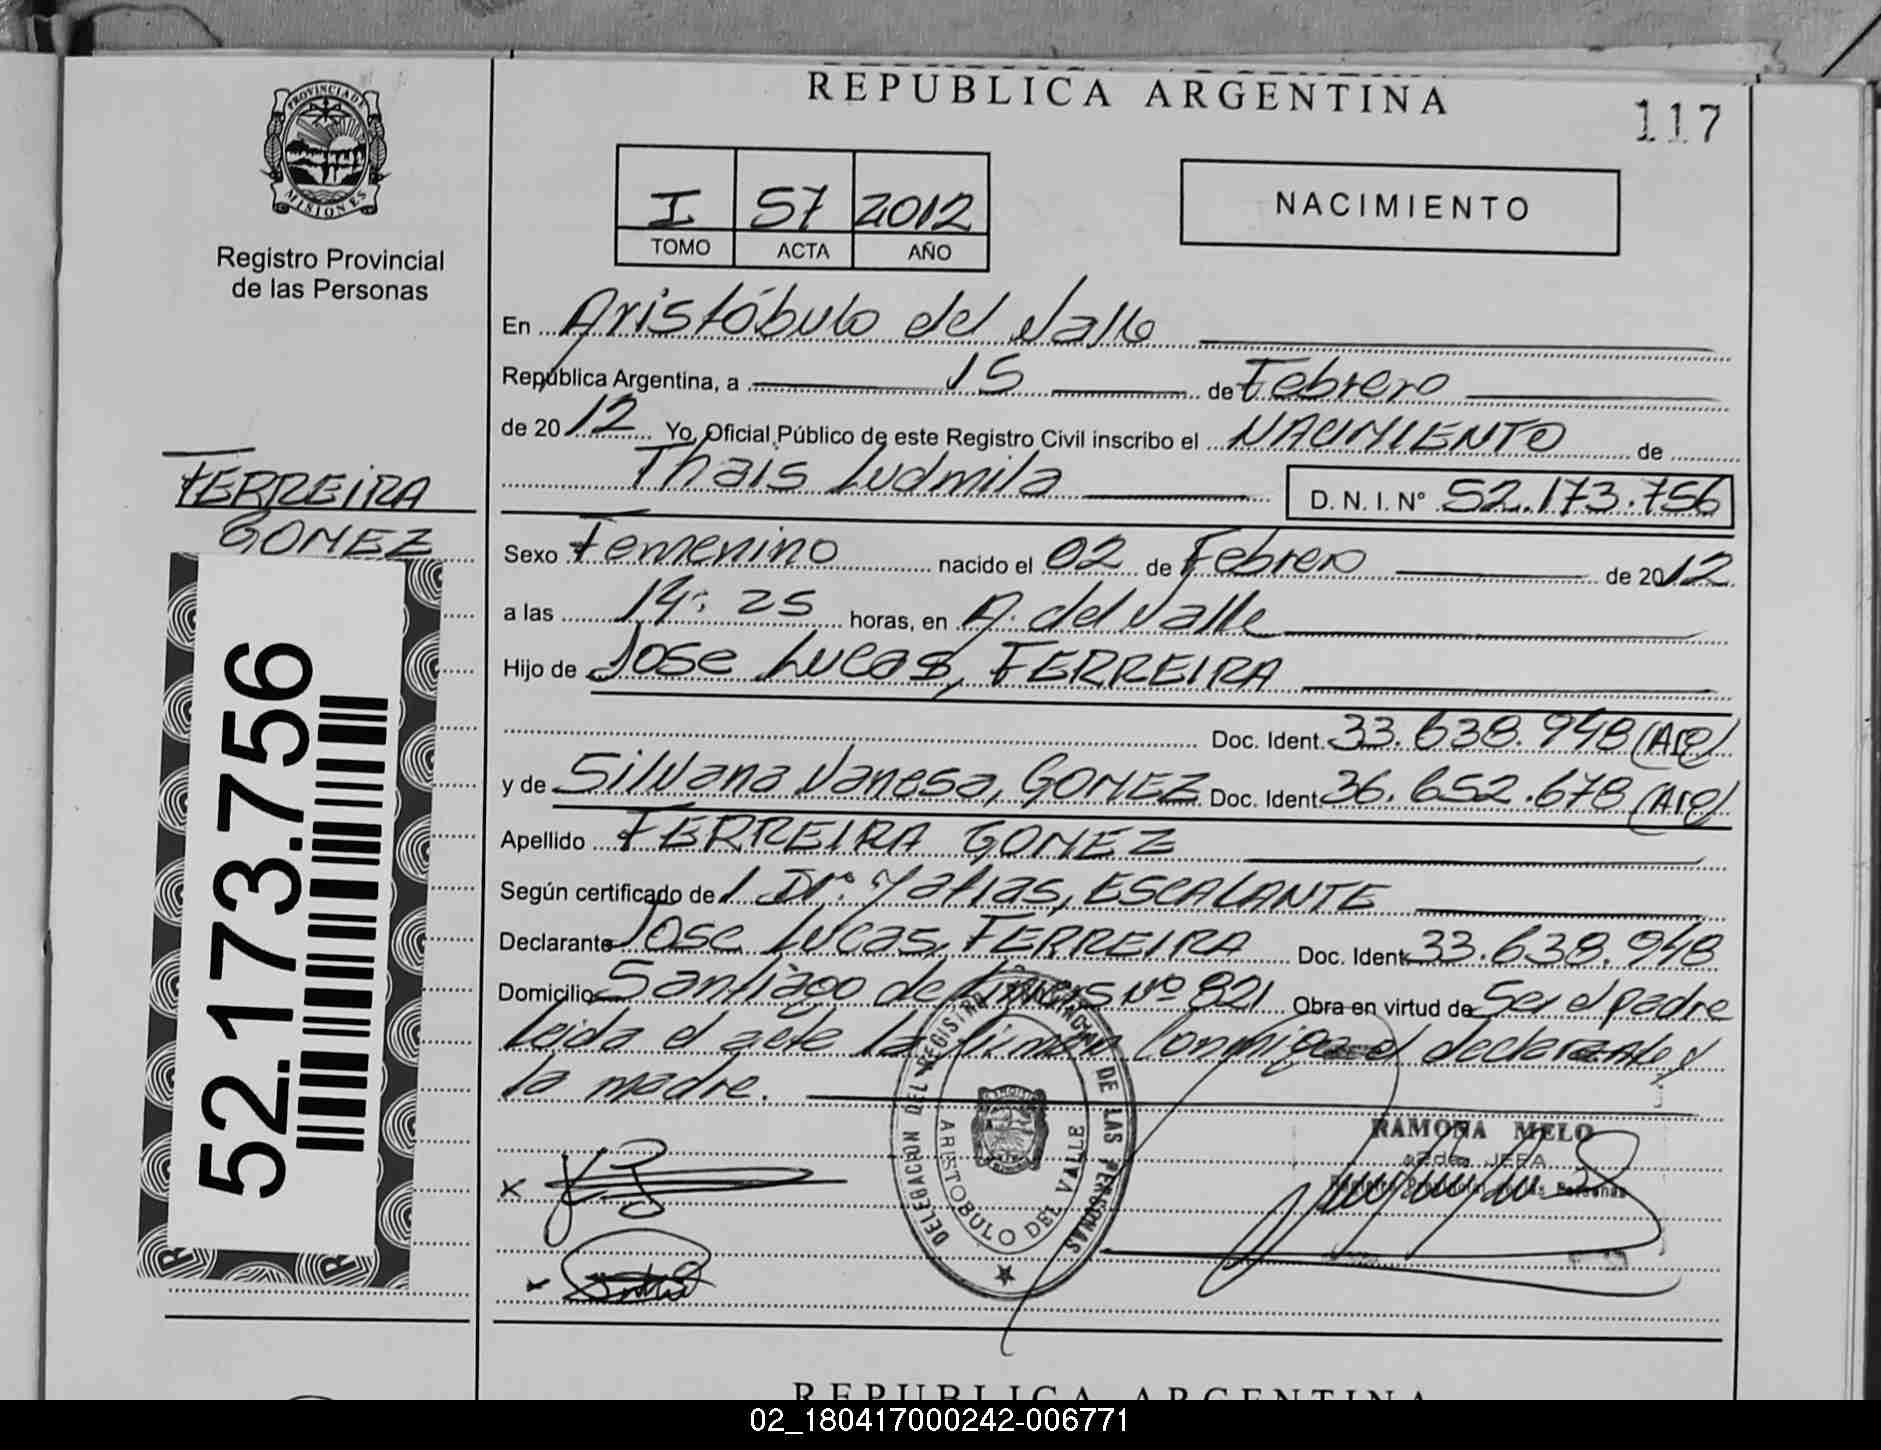 REPUBLICA ARGENTINA
117
PROVINCIA DE
MISIONES
Registro Provincial
de las Personas
I 57 2012
TOMO ACTA AÑO
NACIMIENTO
En Aristóbulo del Valle
República Argentina, a 15 de Febrero
de 2012 Yo, Oficial Público de este Registro Civil inscribo el NACIMIENTO de
Thais Ludmila D. N. I. N° 52.173.756
FERREIRA
GOMEZ
52.173.756
Sexo Femenino nacido el 02 de Febrero de 2012
a las 14:25 horas, en A. del Valle
Hijo de Jose Lucas, FERREIRA
Doc. Ident. 33.638.948 (Arg)
y de Silvana Vanesa, GOMEZ Doc. Ident. 36.652.678 (Arg)
Apellido FERREIRA GOMEZ
Según certificado de / Dr. Matias, ESCALANTE
Declarante Jose Lucas, FERREIRA Doc. Ident. 33.638.948
Domicilio Santiago de Liniers Nº 821 Obra en virtud de Ser el padre
Leida el acta la firman conmigo el declarante y
la madre.
DELEGACION DEL REGISTRO PROVINCIAL DE LAS PERSONAS
ARISTOBULO DEL VALLE
RAMONA MELO
2da JEFA
Registro Provincial de las Personas
REPUBLICA ARGENTINA
02_180417000242-006771